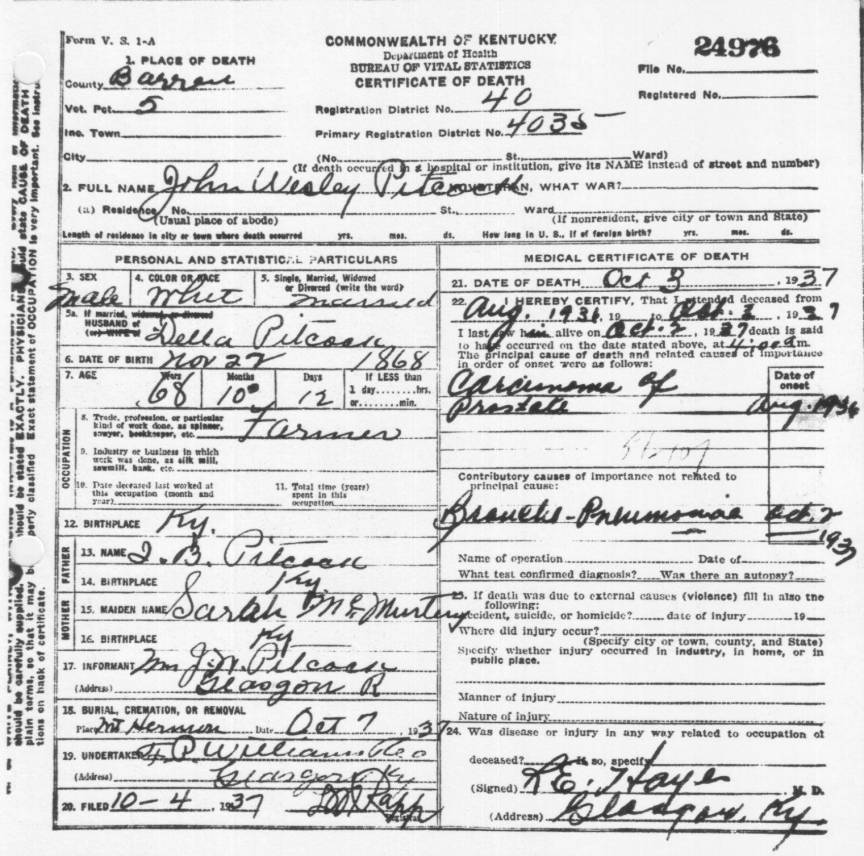 Form V. S. 1-A
COMMONWEALTH OF KENTUCKY
Department of Health
BUREAU OF VITAL STATISTICS
CERTIFICATE OF DEATH
24976
File No.
Registered No.
1. PLACE OF DEATH
County Barren
Vot. Pct. 5
Inc. Town
City
Registration District No. 40
Primary Registration District No. 4035
(No. St., Ward)
(If death occurred in a hospital or institution, give its NAME instead of street and number)
2. FULL NAME John Wesley Pitcock WHAT WAR?
(a) Residence No. St., Ward
(Usual place of abode) (If nonresident, give city or town and State)
Length of residence in city or town where death occurred yrs. mos. ds. How long in U. S., if of foreign birth? yrs. mos. ds.
PERSONAL AND STATISTICAL PARTICULARS
3. SEX 4. COLOR OR RACE 5. Single, Married, Widowed
or Divorced (write the word)
Male Whit Married
5a. If married, widowed or divorced
HUSBAND of
(or) WIFE of Della Pitcock
6. DATE OF BIRTH Nov 22 1868
7. AGE Years Months Days If LESS than
68 10 12 1 day hrs.
or min.
OCCUPATION
8. Trade, profession, or particular
kind of work done, as spinner,
sawyer, bookkeeper, etc. Farmer
9. Industry or business in which
work was done, as silk mill,
sawmill, bank, etc.
10. Date deceased last worked at
this occupation (month and
year)
11. Total time (years)
spent in this
occupation
12. BIRTHPLACE Ky.
FATHER
13. NAME I. B. Pitcock
14. BIRTHPLACE Ky
MOTHER
15. MAIDEN NAME Sarah
16. BIRTHPLACE Ky
17. INFORMANT Pitcock
(Address) R
18. BURIAL, CREMATION, OR REMOVAL
Place Mt Hermon Date Oct 7 1937
19. UNDERTAKER P. Williams
(Address) Glasgow Ky
20. FILED 10-4, 1937 Rapp
Registrar
MEDICAL CERTIFICATE OF DEATH
21. DATE OF DEATH Oct 3, 1937
22. I HEREBY CERTIFY, That I attended deceased from
Aug. 1936, 19 to Oct. 3, 1937
I last saw him alive on Oct. 2, 1937 death is said
to have occurred on the date stated above, at 4:00 a m.
The principal cause of death and related causes of importance
in order of onset were as follows:
Date of
onset
Carcinoma of
Prostate Aug. 1936
Contributory causes of importance not related to
principal cause:
Broncho-Pneumonia Oct. 2
1937
Name of operation Date of
What test confirmed diagnosis? Was there an autopsy?
23. If death was due to external causes (violence) fill in also the
following:
Accident, suicide, or homicide? date of injury 19
Where did injury occur?
(Specify city or town, county, and State)
Specify whether injury occurred in industry, in home, or in
public place.
Manner of injury
Nature of injury
24. Was disease or injury in any way related to occupation of
deceased? If so, specify
(Signed) R.E. Hayes M. D.
(Address) Glasgow, Ky.
should be carefully supplied. should be stated EXACTLY. PHYSICIANS should state CAUSE OF DEATH
plain terms, so that it may be properly classified. Exact statement of OCCUPATION is very important. See instru
tions on back of certificate.